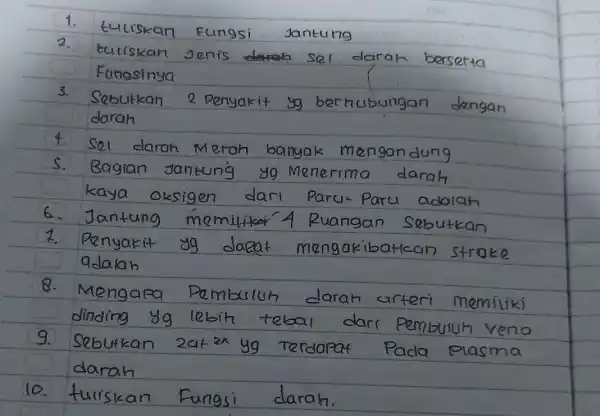 1. tuliskan Fungsi Jantung
2. tuliskan Jenis darah sel darah berserta
Fungsinya
3. Sebutkan 2 Penyakit yg berhubungan dengan
darah
4. Sel darah Merah banyak mengandung
5. Bagian Jantung yg Menerima darah
kaya oksigen dari Paru-Paru adalah
6. Jantung memiliki 4 Ruangan Sebutkan
7. Penyakit yg dapat mengakibatkan stroke
adalah
8. Mengapa Pembuluh darah arteri memiliki
dinding yg lebih tebal dari Pembuluh Vena
9. Sebutkan zat 2x yg Terdapat Pada Plasma
darah
10. tuliskan Fungsi darah.